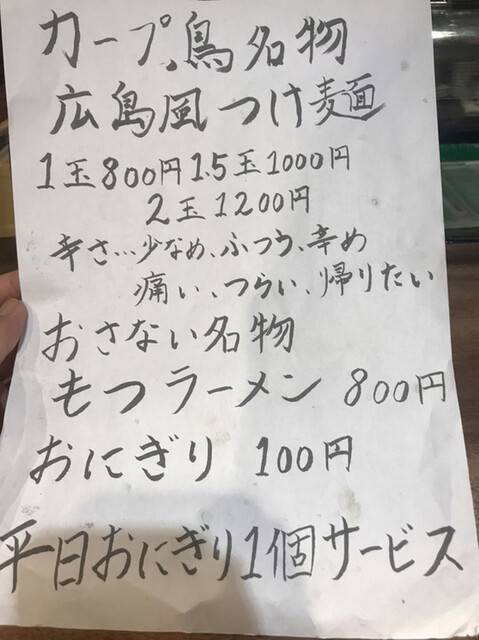 カープ鳥名物
広島風つけ麺
1玉800円1.5玉1000円
2玉1200円
辛さ…少なめ、ふつう、辛め
痛い、つらい、帰りたい
おさない名物
もつラーメン 800円
おにぎり 100円
平日おにぎり1個サービス